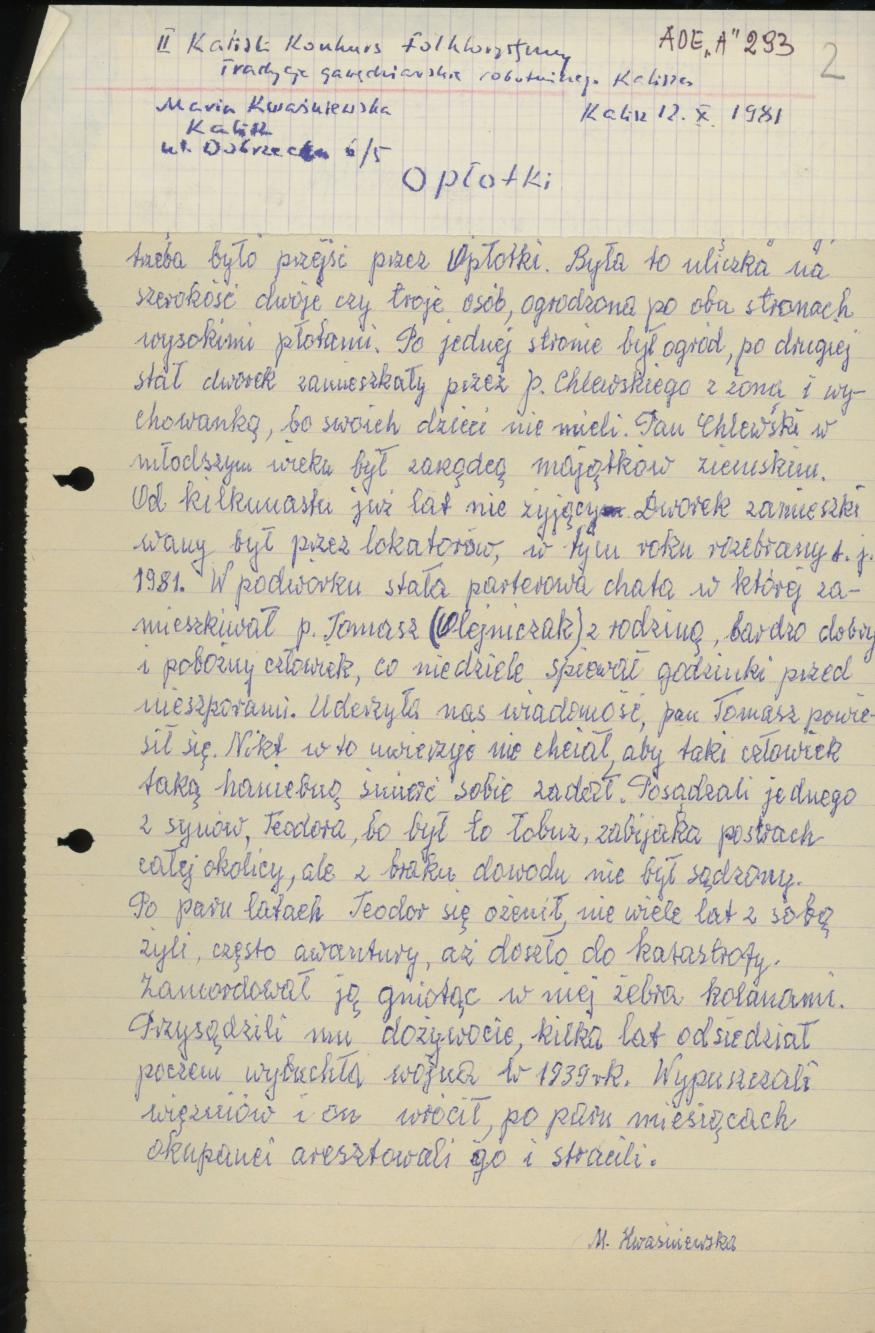 II Kaliski Konkurs Folklorystyczny
ADE „A" 293
2
Tradycje gawędziarskie robotniczego Kalisza
Maria Kwaśniewska
Kalisz 12. X. 1981
Kalisz
ul. Dobrzecka 6/5
Opłotki
trzeba było przejść przez Opłotki. Była to uliczka na
szerokość dwoje czy troje osób, ogrodzona po obu stronach
wysokimi płotami. Po jednej stronie był ogród, po drugiej
stał dworek zamieszkały przez p. Chlewskiego z żoną i wy-
chowanką, bo swoich dzieci nie mieli. Pan Chlewski w
młodszym wieku był zarządcą majątków ziemskim.
Od kilkunastu już lat nie żyjący. Dworek zamieszki
wany był przez lokatorów, w tym roku rozebrany t. j.
1981. W podwórku stała parterowa chata w której za-
mieszkiwał p. Tomasz (Olejniczak) z rodziną, bardzo dobry
i pobożny człowiek, co niedziele śpiewał godzinki przed
nieszporami. Uderzyła nas wiadomość, pan Tomasz powie-
sił się. Nikt w to uwierzyć nie chciał, aby taki człowiek
taką haniebną śmierć sobie zadał. Posądzali jednego
z synów, Teodora, bo był to łobuz, zabijaka postrach
całej okolicy, ale z braku dowodu nie był sądzony.
Po paru latach Teodor się ożenił, nie wiele lat z sobą
żyli, często awantury, aż doszło do katastrofy.
Zamordował ją gniotąc w niej żebra kolanami.
Przysądzili mu dożywocie, kilka lat odsiedział
poczem wybuchła wojna w 1939 rk. Wypuszczali
więzniów i on wrócił, po paru miesiącach
okupanci aresztowali go i stracili.
M. Kwaśniewska